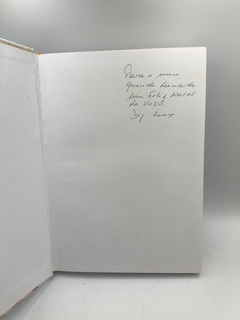 Para o meu
querido Leonardo
um Feliz Natal
do Vovô.
Dez 2004